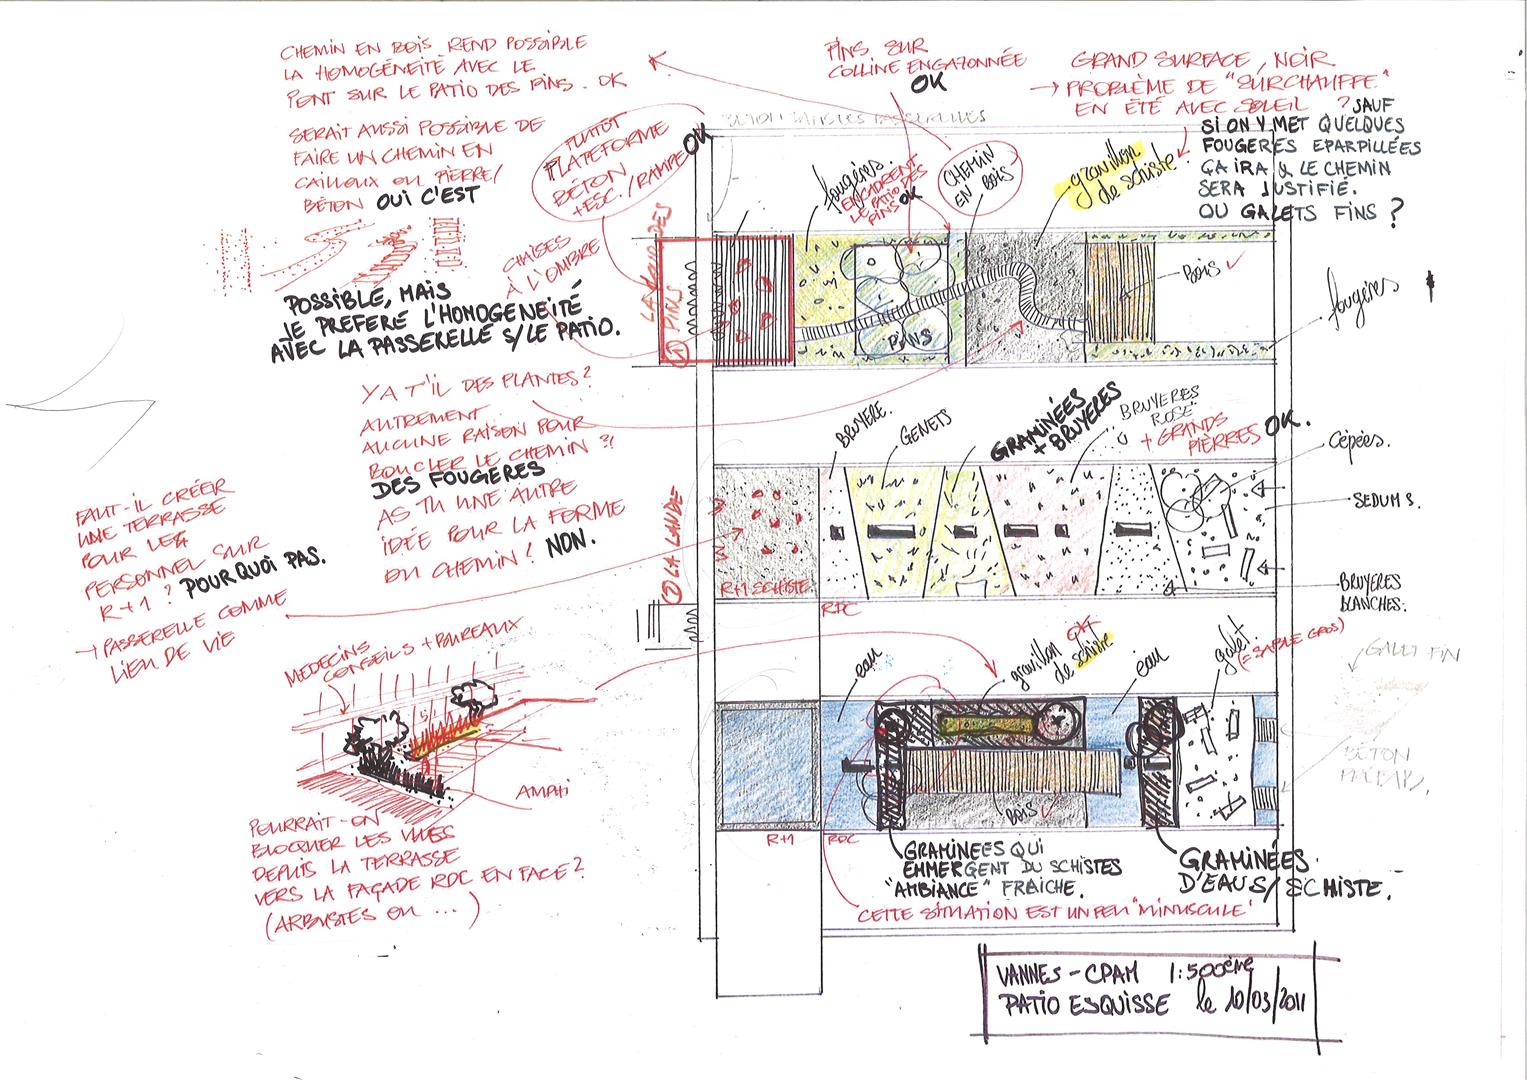 CHEMIN EN BOIS REND POSSIBLE
LA HOMOGÉNEITÉ AVEC LE
PONT SUR LE PATIO DES PINS. OK
SERAIT AUSSI POSSIBLE DE
FAIRE UN CHEMIN EN
CAILLOUX OU PIERRE/
BÉTON OUI C'EST
POSSIBLE, MAIS
JE PREFERE L'HOMOGENEITÉ
AVEC LA PASSERELLE S/LE PATIO.
PLUTOT
PLATEFORME
BÉTON
+ESC./RAMPE OK
CHAISES
À L'OMBRE
PINS SUR
COLLINE ENGAZONNÉE
OK
GRAND SURFACE, NOIR
→ PROBLÈME DE "SURCHAUFFE"
EN ÉTÉ AVEC SOLEIL ? SAUF
SI ON Y MET QUELQUES
FOUGERES EPARPILLÉES
ÇA IRA & LE CHEMIN
SERA JUSTIFIÉ.
OU GALETS FINS ?
fougères.
ENCADRENT
LE PATIO DES
PINS OK
CHEMIN
EN BOIS
gravillon
de schiste
BOIS
fougères
PINS
① PINS
Y A T'IL DES PLANTES?
AUTREMENT
AUCUNE RAISON POUR
BOUCLER LE CHEMIN ?!
DES FOUGERES
AS TU UNE AUTRE
IDÉE POUR LA FORME
DU CHEMIN ! NON.
FAUT-IL CRÉER
UNE TERRASSE
POUR LES
PERSONNEL SUR
R+1 ? POURQUOI PAS.
→ PASSERELLE COMME
LIEU DE VIE
② LA LANDE
BRUYERE.
GENETS
GRAMINÉES
+ BRUYERES
BRUYERES
ROSE
+ GRANDS
PIERRES OK.
Cépées.
SEDUMS.
BRUYERES
BLANCHES.
R+1 SCHISTE
RDC
MEDECINS
CONSEILS + BUREAUX
AMPHI
POURRAIT-ON
BLOQUER LES VUES
DEPUIS LA TERRASSE
VERS LA FAÇADE RDC EN FACE?
(ARBUSTES OU ...)
eau
gravillon
de schiste
OK
eau
galet
(= SABLE GROS)
GALET FIN
BÉTON
BOIS
R+1
RDC
GRAMINEES QUI
EMMERGENT DU SCHISTES
"AMBIANCE" FRAICHE.
GRAMINÉES
D'EAU S/ SCHISTE.
CETTE SITUATION EST UN PEU "MINUSCULE"
VANNES - CPAM 1:500ème
PATIO ESQUISSE le 10/03/2011